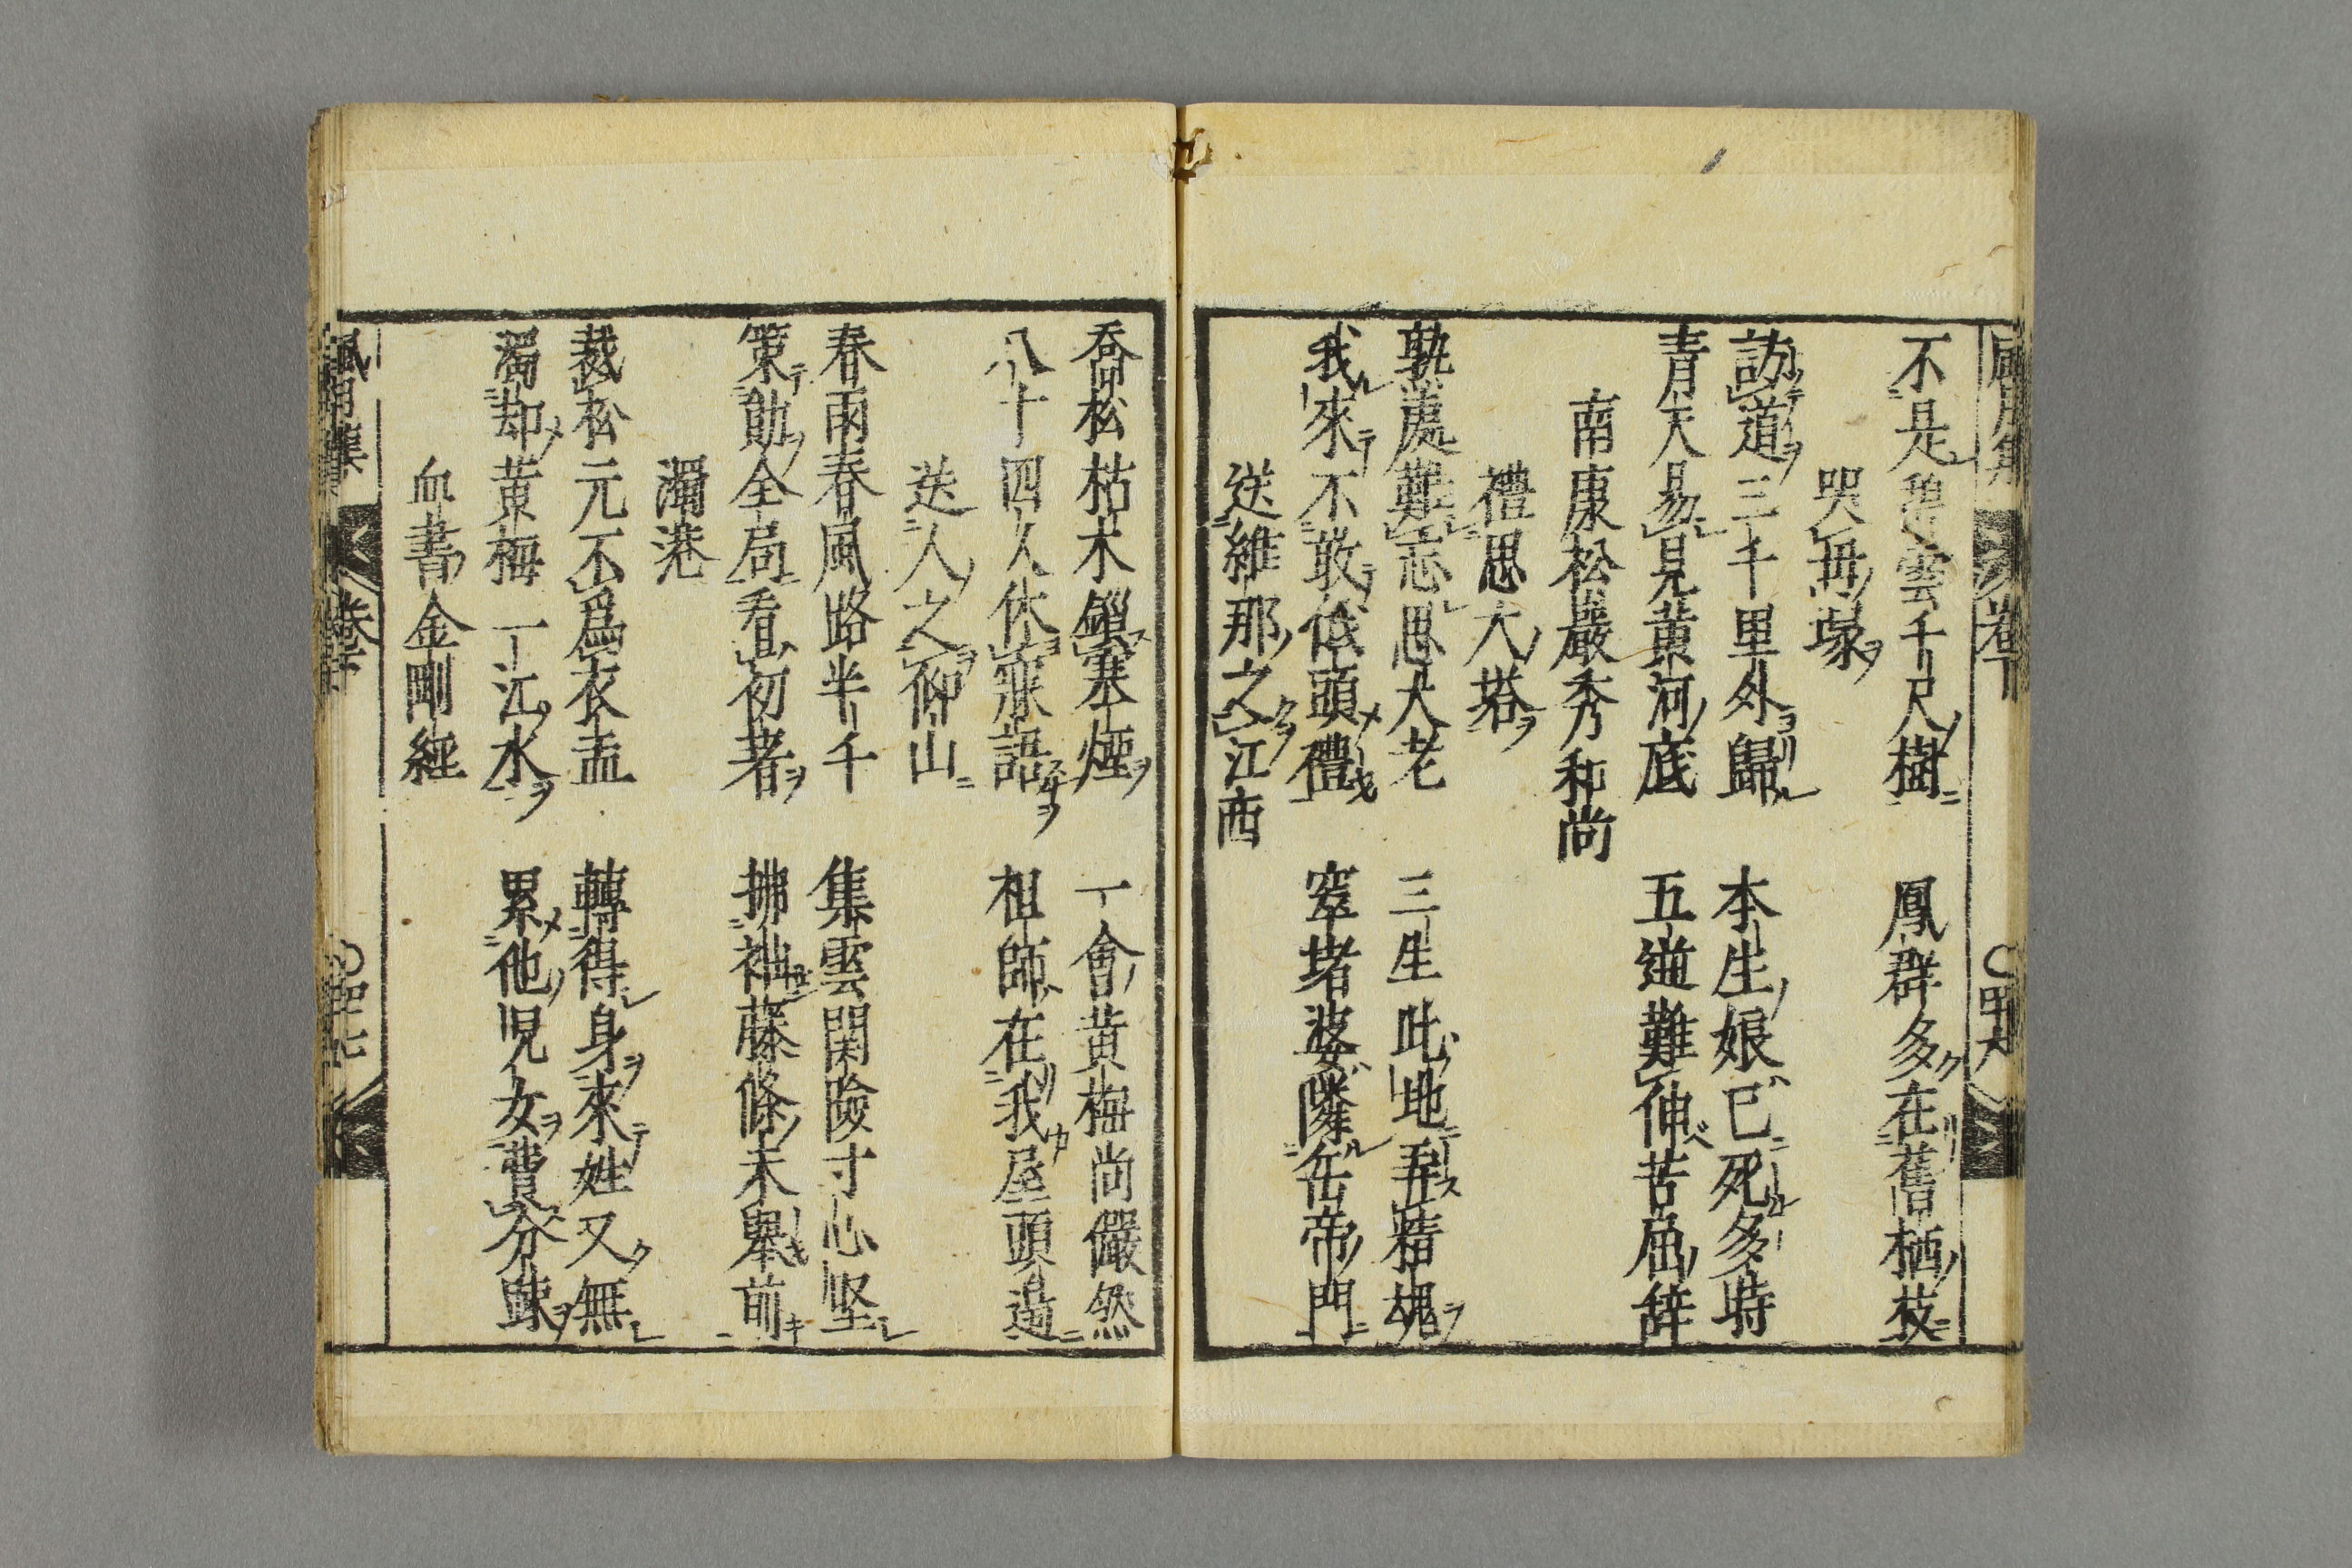 不是碧雲千尺樹　鳳群多在舊栖枝
哭母塚
訪道三千里外歸　本生娘已死多時
青天易見黄河底　五逆難伸苦屈辞
南康松巖秀和尚
禮思大塔
孰處難忘思大老　三生此地弄精魂
我來不敢低頭禮　窣堵婆隣岳帝門
送維那之江西
喬松枯木鎻寒煙　一會黄梅尚儼然
八十四人休寐語　祖師在我屋頭邉
送人之仰山
春雨春風路半千　集雲関險寸心坚
策勛全局看初者　拂袖藤條未舉前
濁港
裁松元不爲衣盂　轉得身來姓又無
濁却黄梅一江水　累他児女費分踈
血書金剛經
卷下
四十七